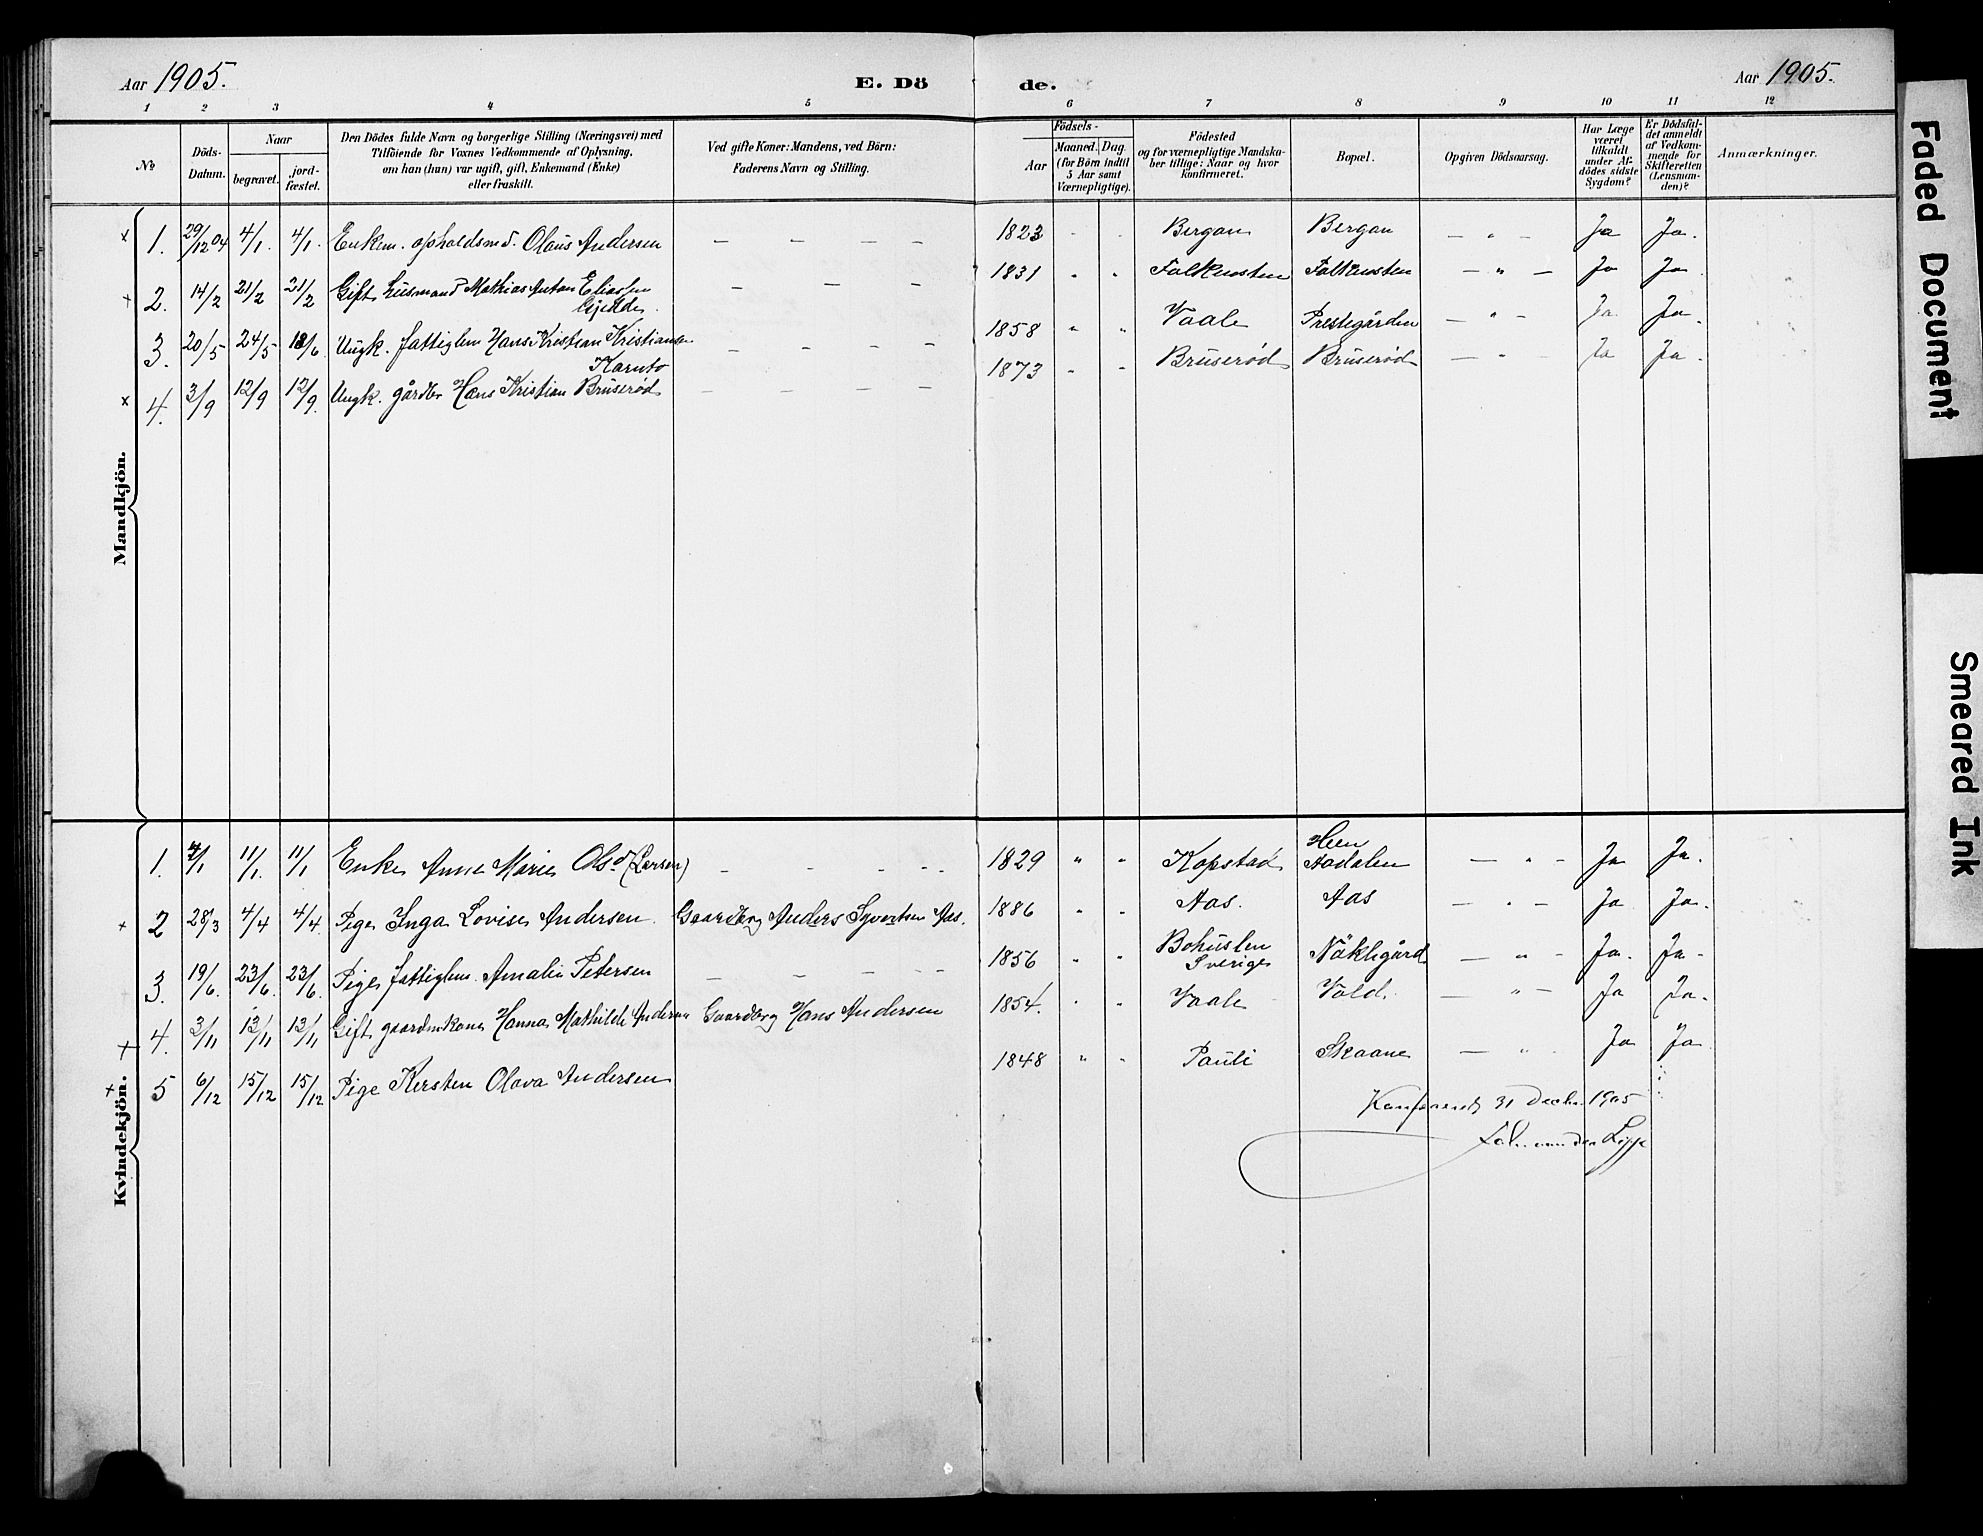 Aar 1905. E. Dö de. Aar 1905.
1 2 3 4 5 6 7 8 9 10 11 12
No
Döds-Datum.
Naar
begravet.
jord-fæstet.
Den Dödes fulde Navn og borgerlige Stilling (Næringsvei) med
Tilföiende for Voxnes Vedkommende af Oplysning,
om han (hun) var ugift, gift, Enkemand (Enke)
eller fraskilt.
Ved gifte Koner: Mandens, ved Börn:
Faderens Navn og Stilling.
Födsels-
Aar
Maaned. Dag.
(for Börn indtil
5 Aar samt
Værnepligtige).
Födested
og for værnepligtige Mandska-
ber tillige: Naar og hvor
konfirmeret.
Bopæl.
Opgiven Dödsaarsag.
Har Læge
været
tilkaldt
under Af-
dödes sidste
Sygdom?
Er Dödsfal-
det anmeldt
af Vedkom-
mende for
Skifteretten
(Lensman-
den)?
Anmærkninger.
Mandkjön.
x 1. 29/12 04 4/1. 4/1. Enkem. opholdsmd. Olaus Andersen — — — — 1823 " " Bergan Bergan — " — Ja Ja.
+ 2. 14/2 21/2 21/2 Gift husmand Mathias Anton Eliassen — — — 1831 " " Falkensten Falkensten — " — Ja Ja
3. 20/5 24/5 18/6 Ungk. fattiglem Hans Kristian Kristiansen — — — — 1858 " " Vaale Prestegården — " — Ja Ja.
x 4. 3/9 12/9 12/9. Ungk. gårdbr Hans Kristian Bruserød — — — — 1873 " " Bruserød Bruserød — " — Ja Ja.
Kvindekjön.
1. 4/1 11/1. 11/1 Enke Anne Marie Olsd. (Larsen) — — — — 1829 " " Kopstad Heen
Aadalen — " — Ja Ja.
+ 2 28/3 4/4 4/4. Pige Inga Lovise Andersen. Gaardbrg Anders Syvertsen Aas. 1886 " " Aas. Aas — " — Ja Ja.
3. 19/6. 23/6. 23/6. Pige fattiglem Amalie Petersen — — — — 1856 " " Bohuslen
Sverige Nökligård — " — Ja. Ja.
+ 4. 3/11 13/11 13/11 Gift gaardmkone Hanna Mathilde Andersen Gaardbrg Hans Andersen 1854. " " Vaale Vold. — " — Ja Ja.
+ 5 6/12 15/12 15/12 Pige Kersten Olava Andersen 1848 " " Pauli Skaane — " — Ja Ja
Konfereret 31 Decbr. 1905
von der Lippe
Faded Document
Smeared Ink